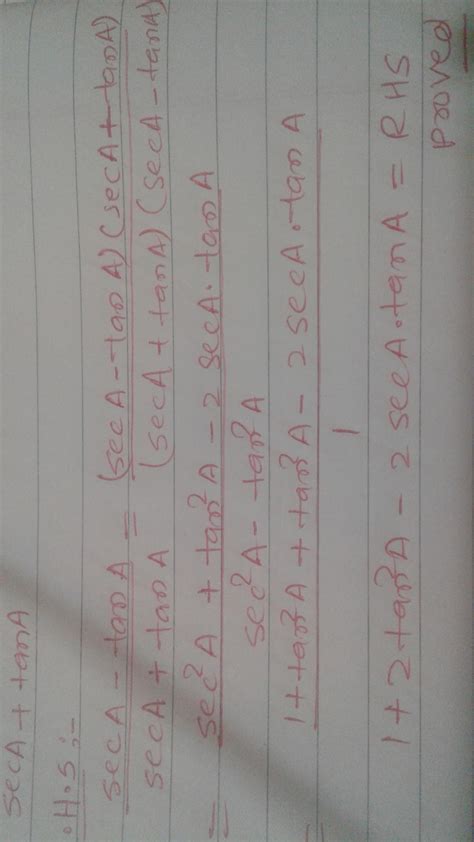 secA + tanA
.H.S :-
secA - tanA / secA + tanA = (secA - tanA) (secA + tanA) / (secA + tanA) (secA - tanA)
= sec²A + tan²A - 2 secA . tanA / sec²A - tan²A
= 1 + tan²A + tan²A - 2 secA . tanA / 1
1 + 2 tan²A - 2 secA . tanA = RHS
proved